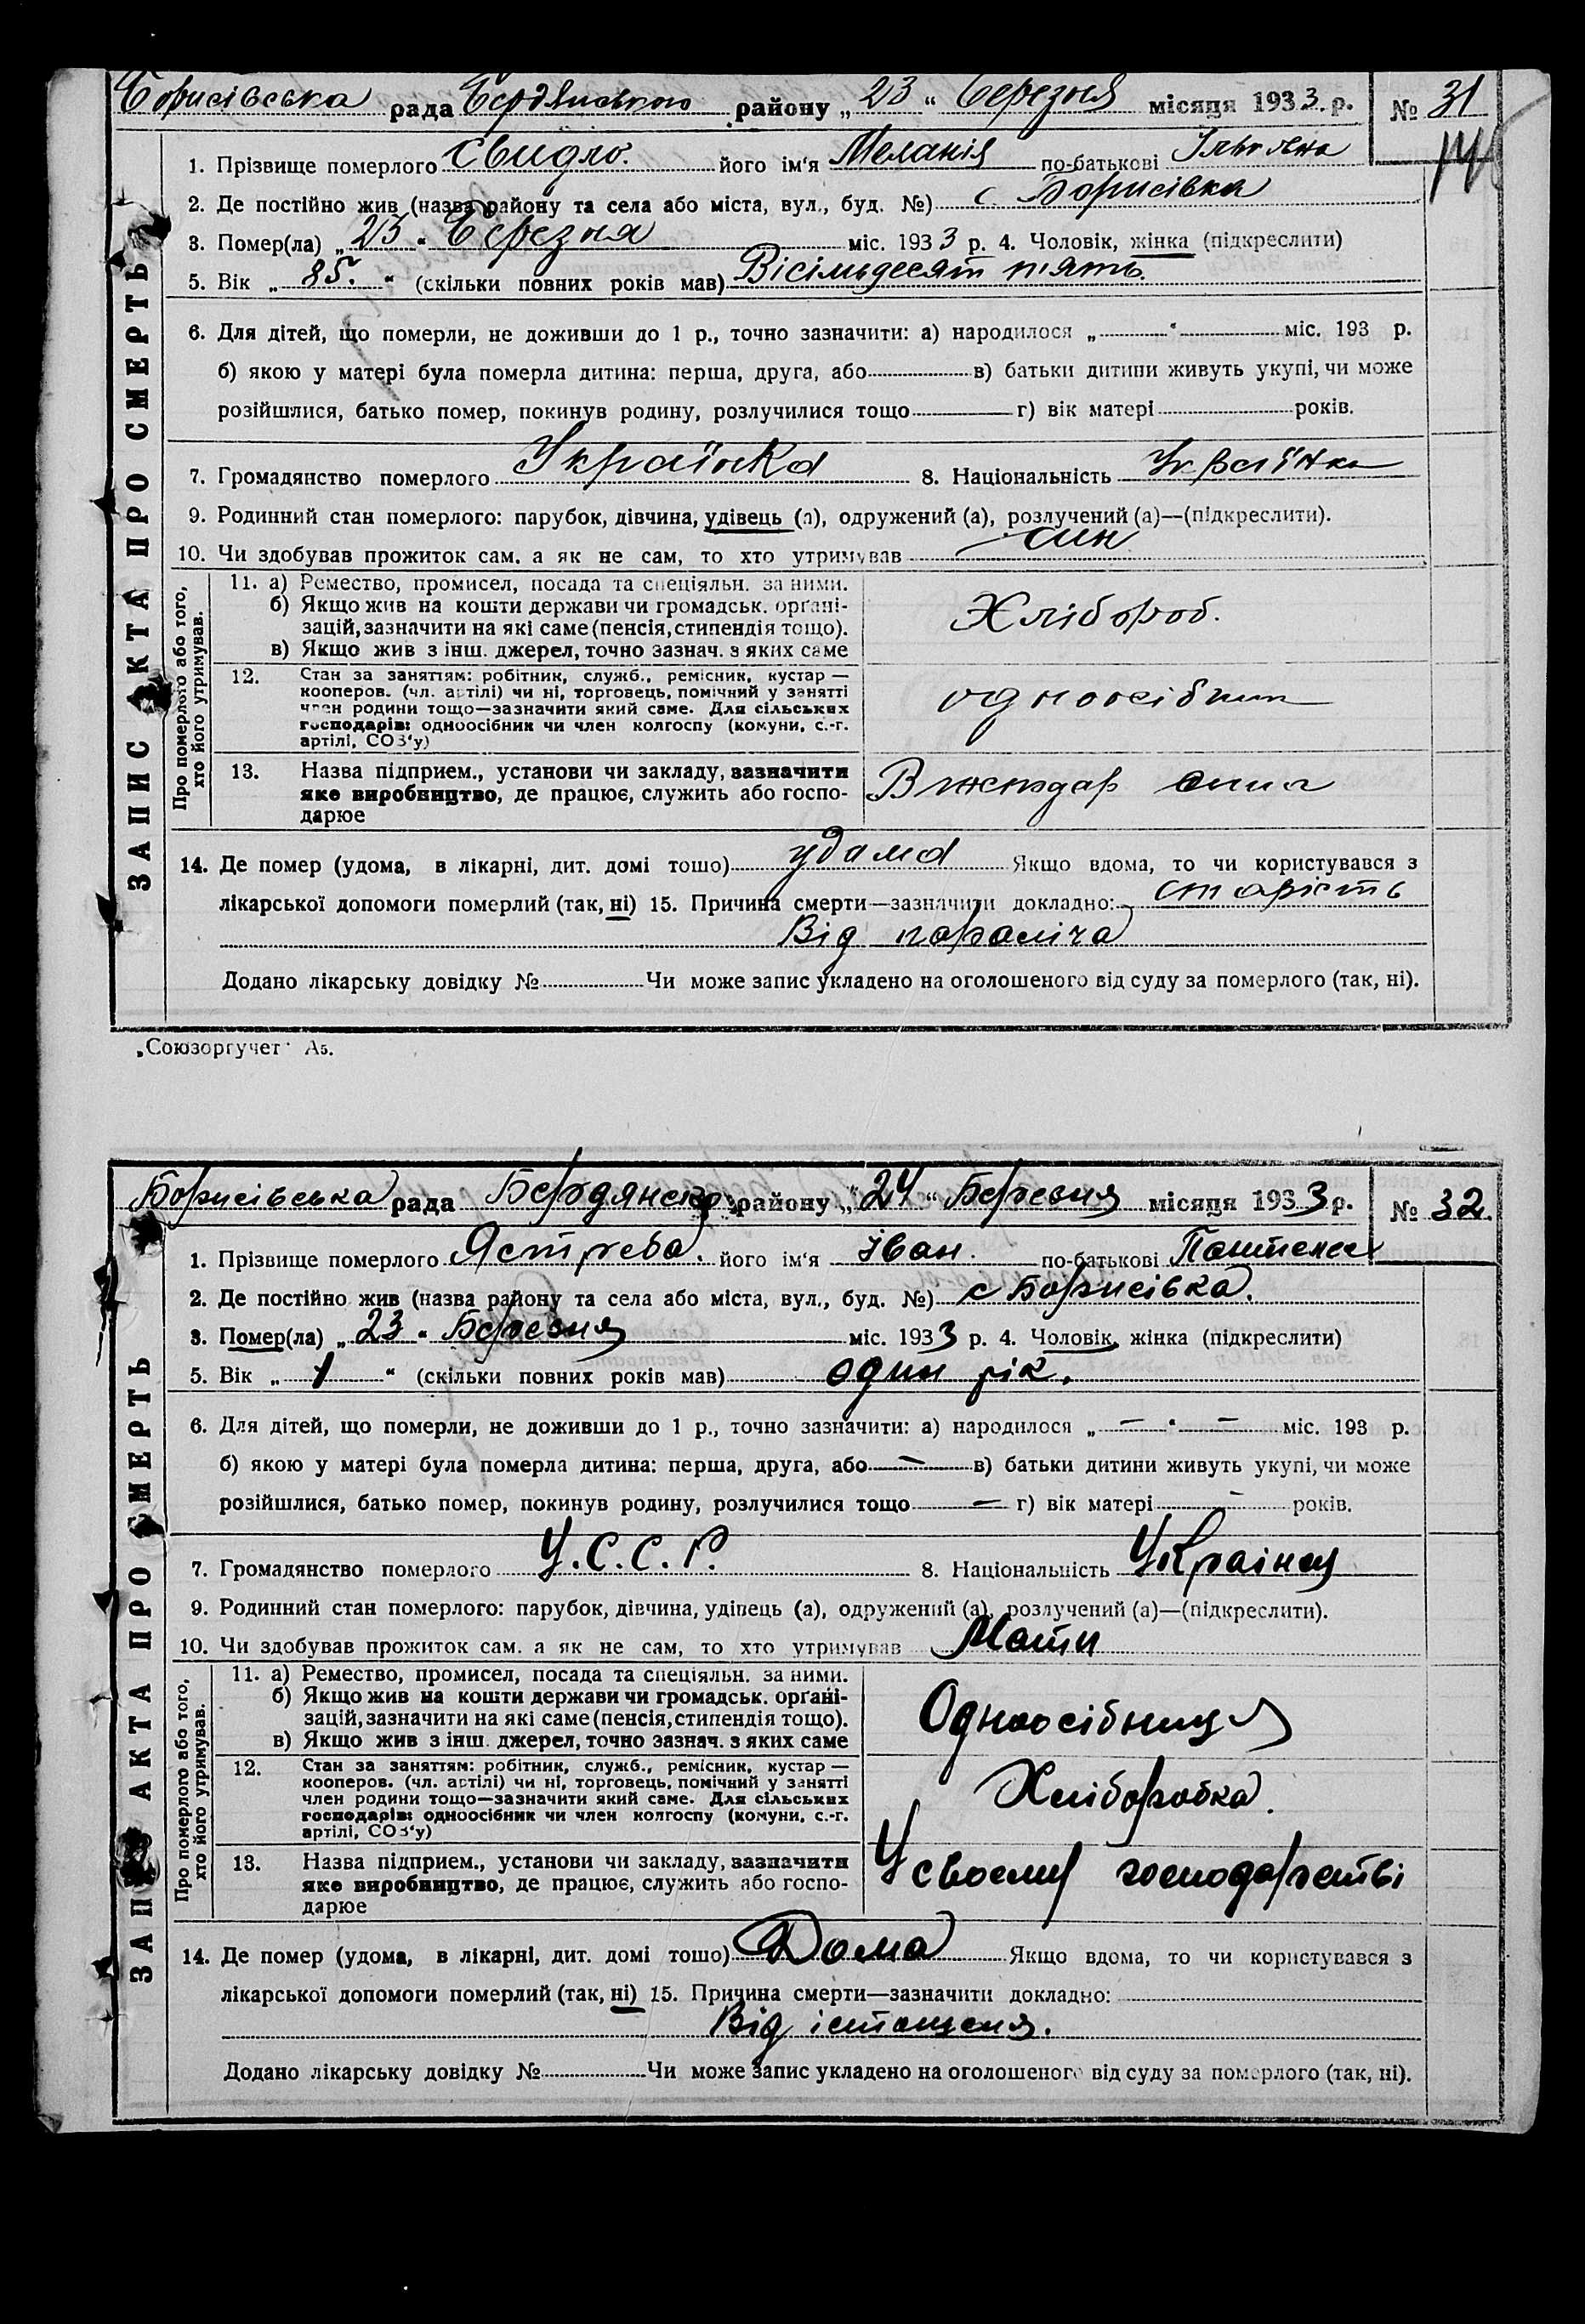 Борисівська рада Бердянського району „23“ Березня місяця 1933 р. № 31
1. Прізвище померлого Свидло. його ім‘я Меланія по-батькові
2. Де постійно жив (назва району та села або міста, вул., буд. №) с. Борисівка
3. Помер(ла) „23“ Березня міс. 1933 р. 4. Чоловік, жінка (підкреслити)
5. Вік „85.“ (скільки повних років мав) Вісімьдесят пять.
6. Для дітей, що померли, не доживши до 1 р., точно зазначити: а) народилося „ “ міс. 193 р.
б) якою у матері була померла дитина: перша, друга, або в) батьки дитини живуть укупі, чи може
розійшлися, батько помер, покинув родину, розлучилися тощо г) вік матері років.
7. Громадянство померлого Українка 8. Національність Українка
9. Родинний стан померлого: парубок, дівчина, удівець (а), одружений (а), розлучений (а)—(підкреслити).
10. Чи здобував прожиток сам, а як не сам, то хто утримував син
ЗАПИС АКТА ПРО СМЕРТЬ
Про померлого або того, хто його утримував.
11. а) Ремество, промисел, посада та спеціяльн. за ними.
б) Якщо жив на кошти держави чи громадськ. орґані-
зацій, зазначити на які саме (пенсія, стипендія тощо).
в) Якщо жив з інш. джерел, точно зазнач. з яких саме
Хлібороб.
12. Стан за заняттям: робітник, служб., ремісник, кустар —
кооперов. (чл. артілі) чи ні, торговець, помічний у занятті
член родини тощо—зазначити який саме. Для сільських
господарів: одноосібник чи член колгоспу (комуни, с.-г.
артілі, СОЗ‘у)
одноосібник
13. Назва підприєм., установи чи закладу, зазначити
яке виробництво, де працює, служить або госпо-
дарюе
14. Де помер (удома, в лікарні, дит. домі тощо) удома Якщо вдома, то чи користувався з
лікарської допомоги померлий (так, ні) 15. Причина смерти—зазначити докладно: старість
Від параліча
Додано лікарську довідку № Чи може запис укладено на оголошеного від суду за померлого (так, ні).
„Союзоргучет“ А5.
Борисівська рада Бердянсько району „24“ Березня місяця 1933 р. № 32.
1. Прізвище померлого Ястреба. його ім‘я Іван. по-батькові
2. Де постійно жив (назва району та села або міста, вул., буд. №) с Борисівка.
3. Помер(ла) „23“ Березня міс. 1933 р. 4. Чоловік, жінка (підкреслити)
5. Вік „1“ (скільки повних років мав) один рік.
6. Для дітей, що померли, не доживши до 1 р., точно зазначити: а) народилося „—“ — міс. 193 р.
б) якою у матері була померла дитина: перша, друга, або — в) батьки дитини живуть укупі, чи може
розійшлися, батько помер, покинув родину, розлучилися тощо — г) вік матері — років.
7. Громадянство померлого У.С.С.Р. 8. Національність
9. Родинний стан померлого: парубок, дівчина, удівець (а), одружений (а), розлучений (а)—(підкреслити).
10. Чи здобував прожиток сам, а як не сам, то хто утримував Мати
ЗАПИС АКТА ПРО СМЕРТЬ
Про померлого або того, хто його утримував.
11. а) Ремество, промисел, посада та спеціяльн. за ними.
б) Якщо жив на кошти держави чи громадськ. орґані-
зацій, зазначити на які саме (пенсія, стипендія тощо).
в) Якщо жив з інш. джерел, точно зазнач. з яких саме
Одноосібниця
12. Стан за заняттям: робітник, служб., ремісник, кустар —
кооперов. (чл. артілі) чи ні, торговець, помічний у занятті
член родини тощо—зазначити який саме. Для сільських
господарів: одноосібник чи член колгоспу (комуни, с.-г.
артілі, СОЗ‘у)
Хліборобка.
13. Назва підприєм., установи чи закладу, зазначити
яке виробництво, де працює, служить або госпо-
дарюе
У своєму господарстві
14. Де помер (удома, в лікарні, дит. домі тощо) Дома Якщо вдома, то чи користувався з
лікарської допомоги померлий (так, ні) 15. Причина смерти—зазначити докладно:
Від істощеня.
Додано лікарську довідку № Чи може запис укладено на оголошеного від суду за померлого (так, ні).